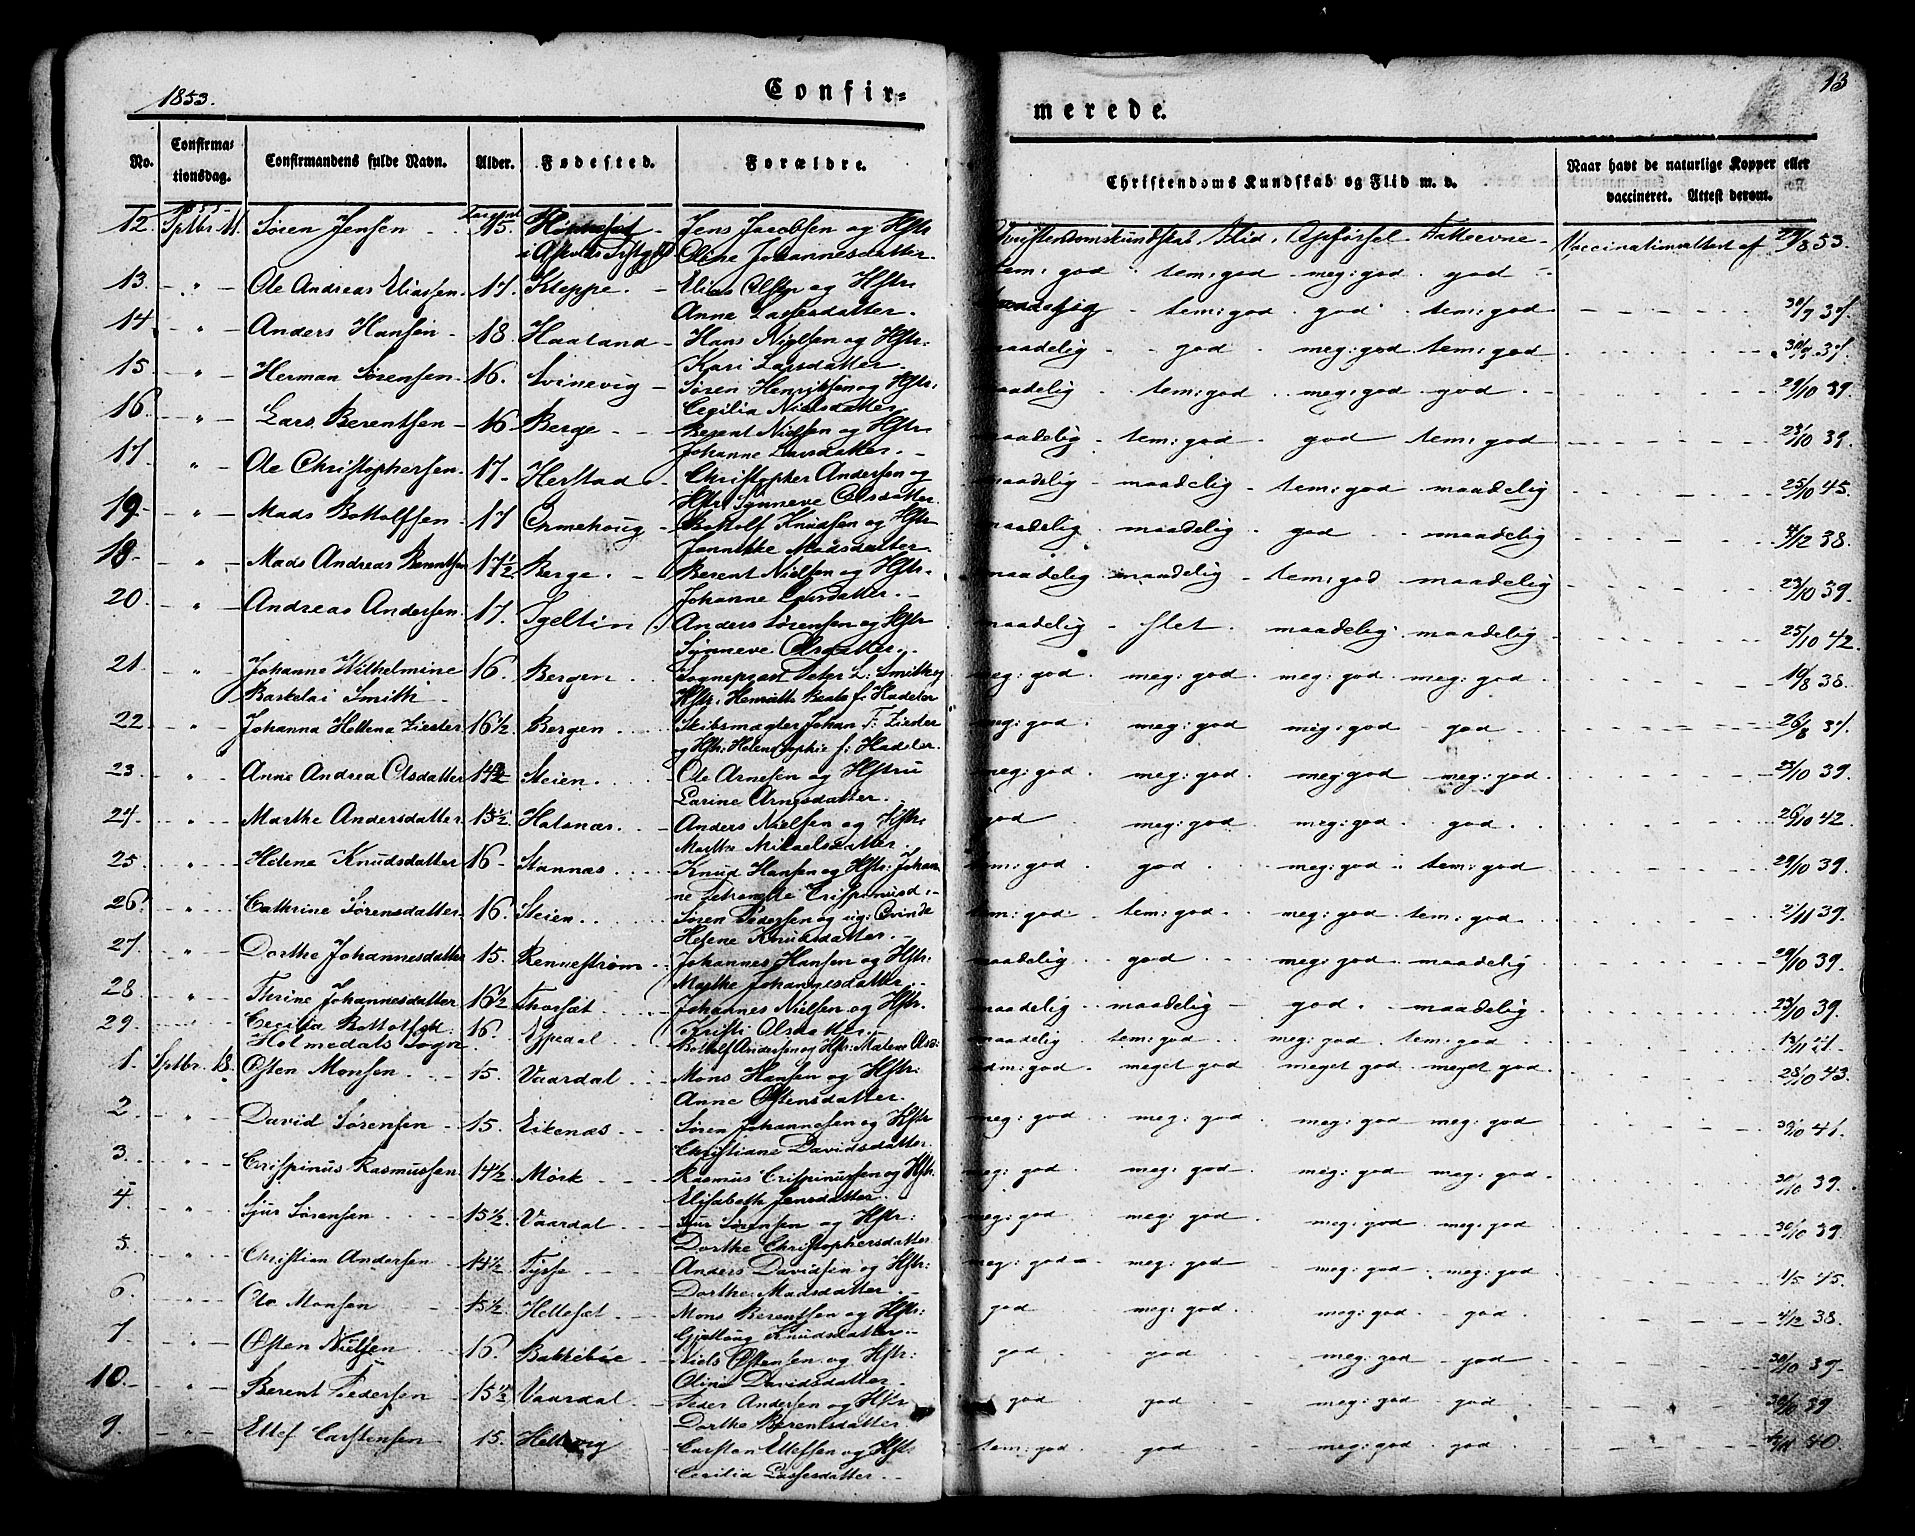 1853.
Confir-
merede.
13
No.
Confirma-
tionsdag.
Confirmandens fulde Navn.
Alder.
Fødested.
Forældre.
Christendoms Kundskab og Flid m. v.
Naar havt de naturlige Kopper eller
vaccineret. Attest derom.
12. Sptbr. 11. Søren Jensen 15. Jens Jacobsen og Hstr
Oline Johannesdatter.
Christendomskundskab. Flid. Opførsel Fatteevne Vaccinationsattest af 53.
tem: god tem: god meg: god god
13. " Ole Andreas Eliassen 17. Kleppe. Elias Olsen og Hstr:
Anne Lassesdatter. tem: god god tem: god
14 " Anders Hansen 18 Haaland Hans Nielsen og Hstr:
Kari Larsdatter maadelig god meg: god tem: god
15 " Herman Sørensen 16. Svinevig Søren Henriksen og Hstr:
Cecilia Nielsdatter maadelig tem: god meg: god god 29/10 39.
16 " Lars Berentsen 16 Berge Berent Nielsen og Hstr:
Johanne Larsdatter. maadelig tem: god god tem: god 23/10 39.
17 " Ole Christophersen 17 Herstad Christopher Andersen og
Hstr: Synneve Olsdatter maadelig maadelig tem: god maadelig 25/10 45.
19. " Mads Bottolfsen 17 Ormehoug Bottolf Knudsen og Hstr
Jannikke Madsdatter maadelig maadelig god maadelig 4/12 38.
18 " Mads Andreas Berentsen 17 1/2 Berge. Berent Nielsen og Hstr.
Johanne Larsdatter. maadelig maadelig tem: god maadelig 23/10 39.
20 " Andreas Andersen 17. Igeltin Anders Sørensen og Hstr
Synneve Olsdatter. maadelig slet. maadelig maadelig 25/10 42.
21 " Johanne Wilhelmine 16 Bergen Sogneprest Peter L: Smith og
Barkelai Smith Hstr: Henriette Beate f: Hadeler meg: god meg: god meg: god meg: god 19/8 38.
22 " Johanna Hellena Ziester 16 1/2 Bergen Skibsmægler Johan F: Ziester
og Hstr: Helene Sophie f: Hadeler. meg: god meg: god meg: god god
23 " Anne Andrea Olsdatter 14 1/2 Steien Ole Arnesen og Hstru
Larine Arnesdatter. meg: god meg: god meg: god meg: god 39.
24 " Marthe Andersdatter 15 1/2 Holsnæs. Anders Nielsen og Hstr:
Marthe Mikaelsdatter. god meg: god meg: god god 26/10 42
25 " Helene Knudsdatter 16 Stannæs Knud Hansen og Hstr: Johan
ne Petronelle Crispinusd: tem: god god meg: god tem: god 29/10 39.
26 " Cathrine Sørensdatter 16. Steien Søren Pedersen og ug: Qvinde
Helene Knudsdatter. tem: god tem: god. meg: god tem: god 2/11 39.
27 " Dorthe Johannesdatter 15. Rennestrøm Johannes Hansen og Hstr:
Marthe Johannesdatter. maadelig god meg: god maadelig 29/10 39.
28 " Thrine Johannesdatter 16 1/2 Thorsæt Johannes Nielsen og Hstr.
Kristi Olsdatter maadelig maadelig god. maadelig 23/10 39.
29 Cecilia Bottolfsd. 16. Espedal Bottolf Andersen og Hstr: Malene Olsd:
maadelig tem: god meg: god tem: god
Holmedals Sogn
1. Sptbr. 18. Østen Monsen 15. Vaardal Mons Hansen og Hstr:
Anne Østensdatter. meget god meget god meget god 28/10 43.
2 " David Sørensen 15. Eikenæs Søren Johannesen og Hstr
Christiane Davidsdatter. meg: god meg: god meg: god meg: god 41.
3. " Crispinus Rasmussen 14 1/2 Mørk Rasmus Crispinussen og Hstr.
Elisabeth Jensdatter. meg: god meg: god meg: god meg: god 39.
4 " Sjur Sørensen 15 1/2 Vaardal Sjur Sørensen og Hstr:
Dorthe Christophersdatter meg: god meg: god meg: god meg: god 30/10 39
5 " Christian Andersen 14 1/2 Tysse Anders Davidsen og Hstr:
Dorthe Madsdatter. meg: god meg: god meg: god meg: god 1/5 45.
6 " Ole Monsen 15 1/2 Hellesæt Mons Berentsen og Hstr:
Gjøttoug Knudsdatter. god meg: god. meg: god god 4/12 38.
7 " Østen Nielsen 16. Bakkebøe Niels Østensen og Hstr:
Oline Davidsdatter. god god meg: god god 30/10 39
10. " Berent Pedersen 15 1/2 Vaardal Peder Andersen og Hstr
Dorthe Berentsdatter god god meg: god god 30/10 39
9. " Ellef Carstensen 15. Hellevig Carsten Ellefsen og Hstr
Cecilia Lassesdatter. tem: god god meg: god god 40.